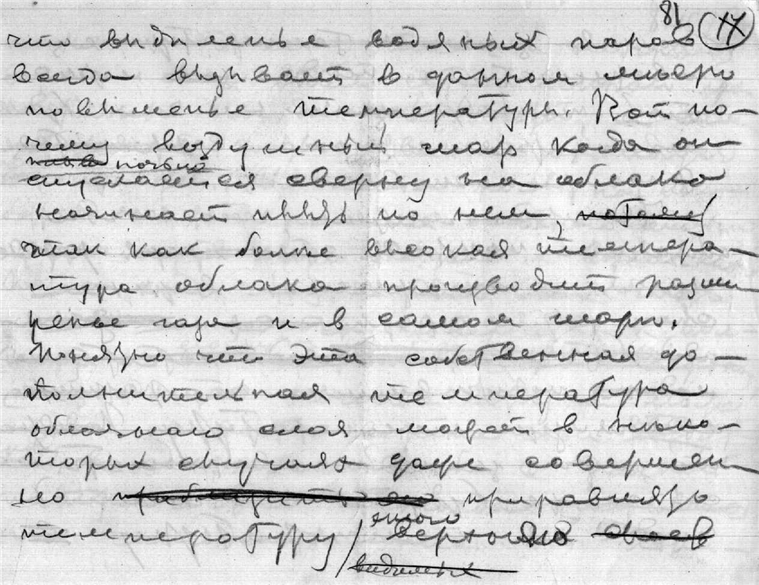 81 17
что выделенье водяных паров
всегда вызывает в данном месте
повышенье температуры. Вот по-
чему воздушный шар когда он
ночью
спускается сверху на облако
начинает плыть по нем, потому
так как более высокая темпера-
тура облака производит расши
ренье газа и в самом шаре.
Понятно что эта собственная до-
полнительная температура
облачного слоя может в неко-
торых случаях даже совершен-
но приравнять
температуру